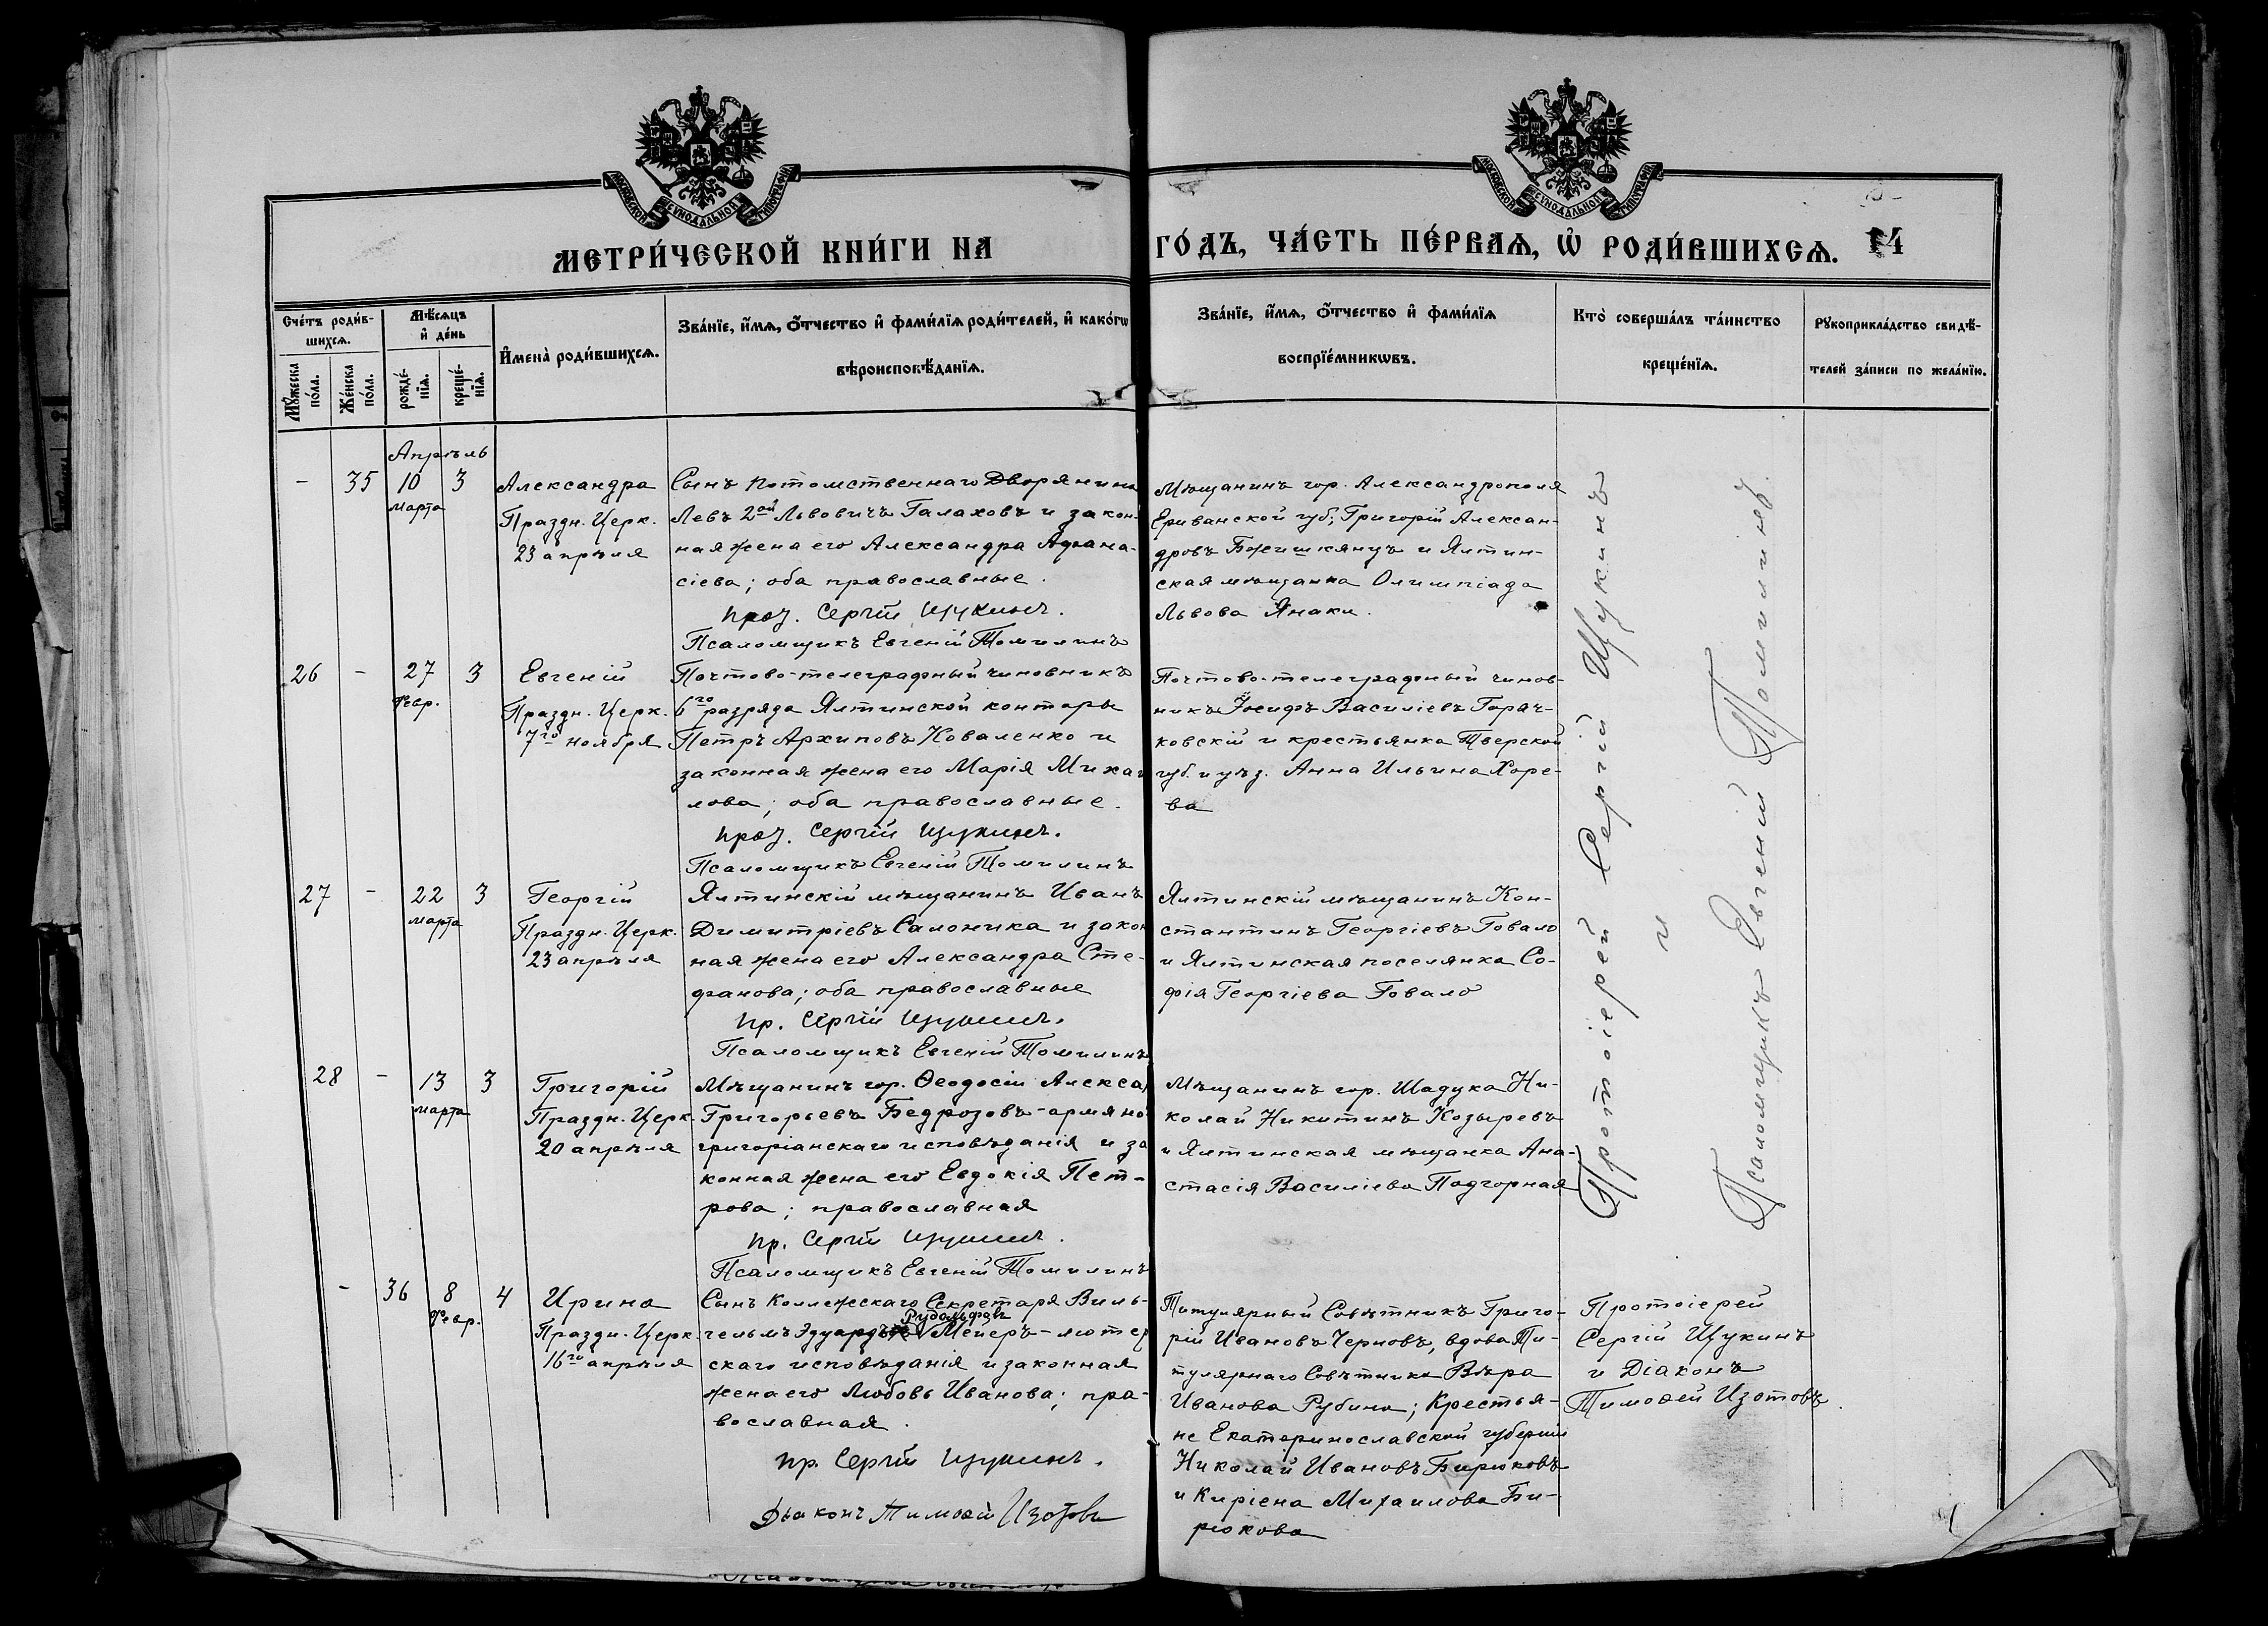 МОСКОВСКОЙ СѴНОДАЛЬНОЙ ТИПОГРАФІИ
МОСКОВСКОЙ СѴНОДАЛЬНОЙ ТИПОГРАФІИ
МЕТРИ́ЧЕСКОЙ КНИ́ГИ НА
ГО́ДЪ, ЧА́СТЬ ПЕ́РВАѦ, Ѡ҆ РОДИ́ВШИХСѦ. 14
Сче́тъ роди́в-
шихсѧ.
Мꙋ́жеска по́ла.
Же́нска по́ла.
Мѣ́сѧцъ и҆ де́нь
рожде́-нїѧ.
креще́-нїѧ.
И҆мена̀ роди́вшихсѧ.
Зва́нїе, и҆́мѧ, ѻ҆́тчество и҆ фами́лїѧ роди́телей, и҆ како́гѡ
вѣроисповѣ́данїѧ.
Зва́нїе, и҆́мѧ, ѻ҆́тчество и҆ фами́лїѧ
воспрїе́мникѡвъ.
Кто̀ соверша́лъ та́инство
креще́нїѧ.
Рꙋкоприкла́дство свидѣ́-
телей за́писи по жела́нїю.
Апрѣль
- 35 10 3
марта
Александра
Праздн. Церк.
23 апрѣля
Сынъ потомственнаго Дворянина
Левъ 2ой Львовичъ Галаховъ и закон-
ная жена его Александра Афана-
сіева; оба православные.
прот. Сергій Щукинъ.
Псаломщикъ Евгеній Томилинъ
Мѣщанинъ гор. Александрополя
Ериванской губ. Григорій Алексан-
дровъ Божишкянцъ и Ялтин-
ская мѣщанка Олимпіада
Львова Янаки.
26 - 27 3
Февр.
Евгеній
Праздн. Церк.
7го ноября
Почтово-телеграфный чиновникъ
6го разряда Ялтинской конторы
Петръ Архиповъ Коваленко и
законная жена его Марія Михаи
лова; оба православные.
прот. Сергій Щукинъ.
Псаломщикъ Евгеній Томилинъ
Почтово-телеграфный чинов-
никъ Іосифъ Василіевъ Горач-
ковскій и крестьянка Тверской
губ. и уѣз. Анна Ильина Хоре-
ва
27 - 22 3
марта
Георгій
Праздн. Церк.
23 апрѣля
Ялтинскій мѣщанинъ Иванъ
Димитріевъ Салоника и закон
ная жена его Александра Сте-
фанова; оба православные
пр. Сергій Щукинъ.
Псаломщикъ Евгеній Томилинъ
Ялтинскій мѣщанинъ Кон-
стантинъ Георгіевъ Говало
и Ялтинская поселянка Со-
фія Георгіева Говало
28 - 13 3
марта
Григорій
Праздн. Церк.
20 апрѣля
Мѣщанинъ гор. Ѳеодосіи Алекса
Григорьевъ Бедрозовъ-армяно
григоріанскаго исповѣданія и за
конная жена его Евдокія Пет-
рова; православная
пр. Сергій Щукинъ.
Псаломщикъ Евгеній Томилинъ
Мѣщанинъ гор. Шадука Ни-
колай Никитинъ Козыревъ
и Ялтинская мѣщанка Ана-
стасія Василіева Подгорная
Протоіерей Сергій Щукинъ
и
Псаломщикъ Евгеній Томилинъ.
- 36 8 4
Февр.
Ирина
Праздн. Церк.
16го апрѣля
Сынъ Коллежскаго Секретаря Виль-
Рудольфовъ
гельмъ Эдуардъ Мейеръ-лютер
скаго исповѣданія и законная
жена его Любовь Иванова; пра-
вославная.
пр. Сергій Щукинъ.
Дьаконъ Тимоѳей Изотовъ
Титулярный Совѣтникъ Григо-
рій Ивановъ Черновъ, вдова Ти-
тулярнаго Совѣтника Вѣра
Иванова Рубина; Крестья-
не Екатеринославской губерніи
Николай Ивановъ Бирюковъ
и Киріена Михаилова Би-
рюкова
Протоіерей
Сергій Щукинъ
и Діаконъ
Тимоѳей Изотовъ.